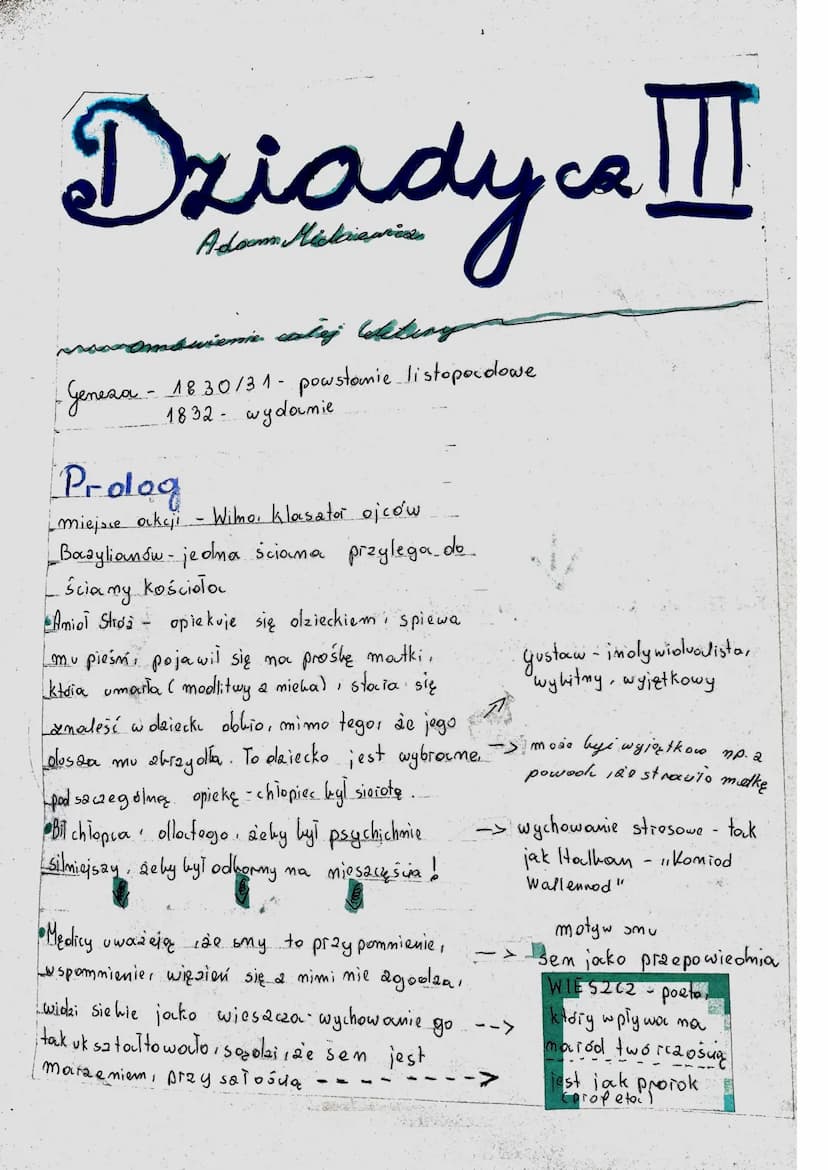 Dziady cz III
Adam Mickiewicz
omówienie całej lektury
Geneza - 1830/31 - powstanie listopadowe
1832 - wydanie
Prolog
miejsce akcji - Wilno, klasztor ojców
Bazylianów - jedna ściana przylega do
ściany kościoła
Anioł Stróż - opiekuje się dzieckiem, śpiewa
mu pieśni, pojawił się na prośbę matki,
która umarła (modlitwy z nieba), stara się
znaleść w dziecku dobro, mimo tego, że jego
dusza mu zbrzydła. To dziecko jest wybrane,
pod szczególną opieką - chłopiec był sierotą.
Gustaw - indywidualista,
wybitny, wyjątkowy
-> może być wyjątkowe np. z
powodu, że straciło matkę
Bił chłopca, dlatego, żeby był psychicznie
silniejszy, żeby był odporny na nieszczęścia!
-> wychowanie stresowe - tak
jak Halban - "Konrad
Wallenrod"
Mędrcy uważają, że sny to przypomnienie,
wspomnienie, więzień się z nimi nie zgadza,
widzi siebie jako wieszcza - wychowanie go
tak ukształtowało, sądzi, że sen jest
marzeniem, przyszłością
motyw snu
-> sen jako przepowiednia
WIESZCZ - poeta,
który wpływa na
naród twórczością
jest jak prorok
(profeta)